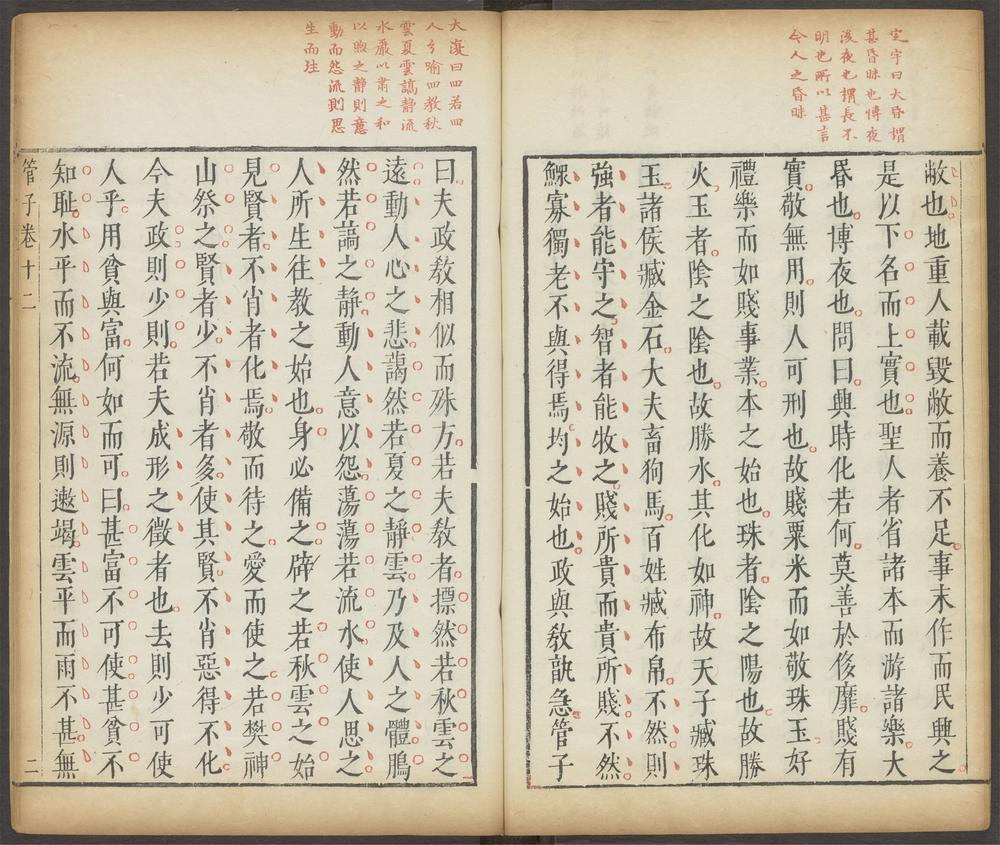 宅宇曰大昏謂
甚昏昧也博夜
深夜也謂長不
明也所以甚言
令人之昏昧
敝也地重人載毀敝而養不足事末作而民興之
是以下名而上實也聖人者省諸本而游諸樂大
昏也博夜也問曰興時化若何莫善於侈靡賤有
實敬無用則人可刑也故賤粟米而如敬珠玉好
禮樂而如賤事業本之始也珠者陰之陽也故勝
火玉者陰之陰也故勝水其化如神故天子臧珠
玉諸侯臧金石大夫畜狗馬百姓臧布帛不然則
強者能守之智者能牧之賤所貴而貴所賤不然
鰥寡獨老不與得焉均之始也政與敎孰急管子
大復曰四若四
人兮喻四教秋
雲夏雲謞静流
水嚴以肅之和
以煦之静則意
動而怨流則思
生而往
曰夫政敎相似而殊方若夫敎者摽然若秋雲之
遠動人心之悲藹然若夏之靜雲乃及人之體鵰
然若謞之静動人意以怨蕩蕩若流水使人思之
人所生往教之始也身必備之辟之若秋雲之始
見賢者不肖者化焉敬而待之愛而使之若樊神
山祭之賢者少不肖者多使其賢不肖惡得不化
今夫政則少則若夫成形之徵者也去則少可使
人乎用貧與富何如而可曰甚富不可使甚貧不
知恥水平而不流無源則遬竭雲平而雨不甚無
管子卷十二
二